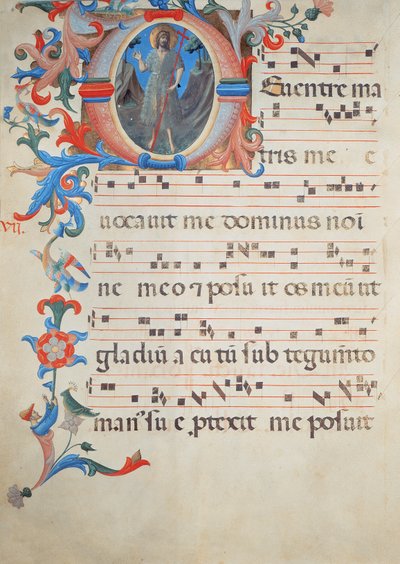 DEuentre ma
tris me e
uocauit me dominus noi
VII.
ne meo ⁊ posu it os meū ut
gladiū a cu tū sub tegum̄to
manꝰ su e ꝓtexit me posuit